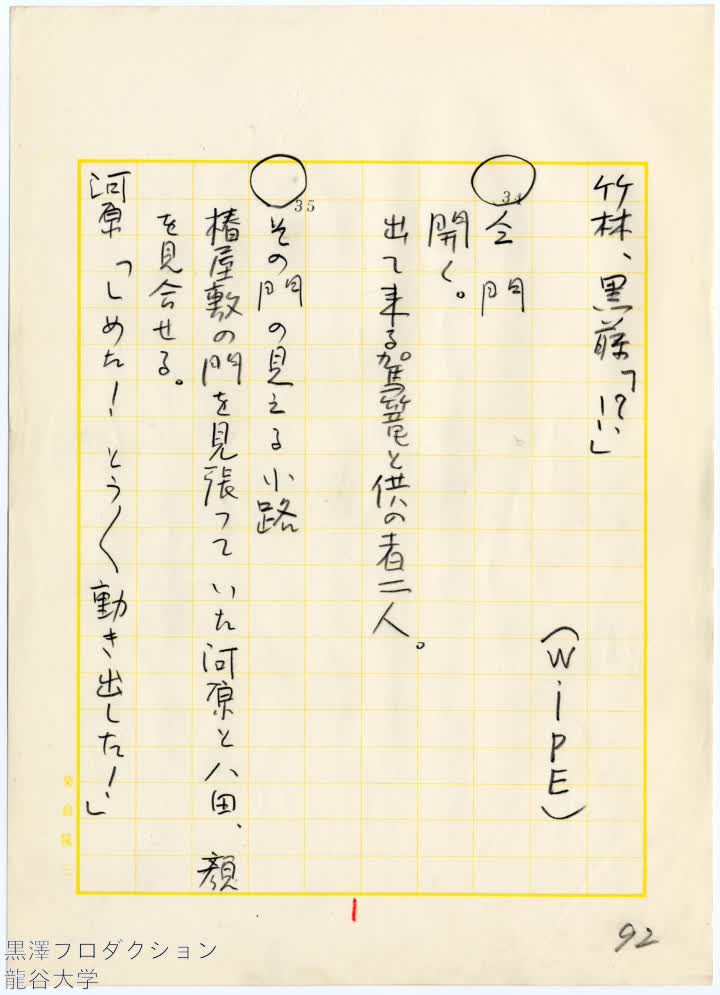 竹林、黒藤「!?‥」
（WIPE）
34
仝 門
開く。
出て来る駕篭と供の者二人。
35
その門の見える小路
椿屋敷の門を見張っていた河原と八田、顔
を見合せる。
河原「しめた！とう〱動き出した！」
1
92
黒澤プロダクション
龍谷大学